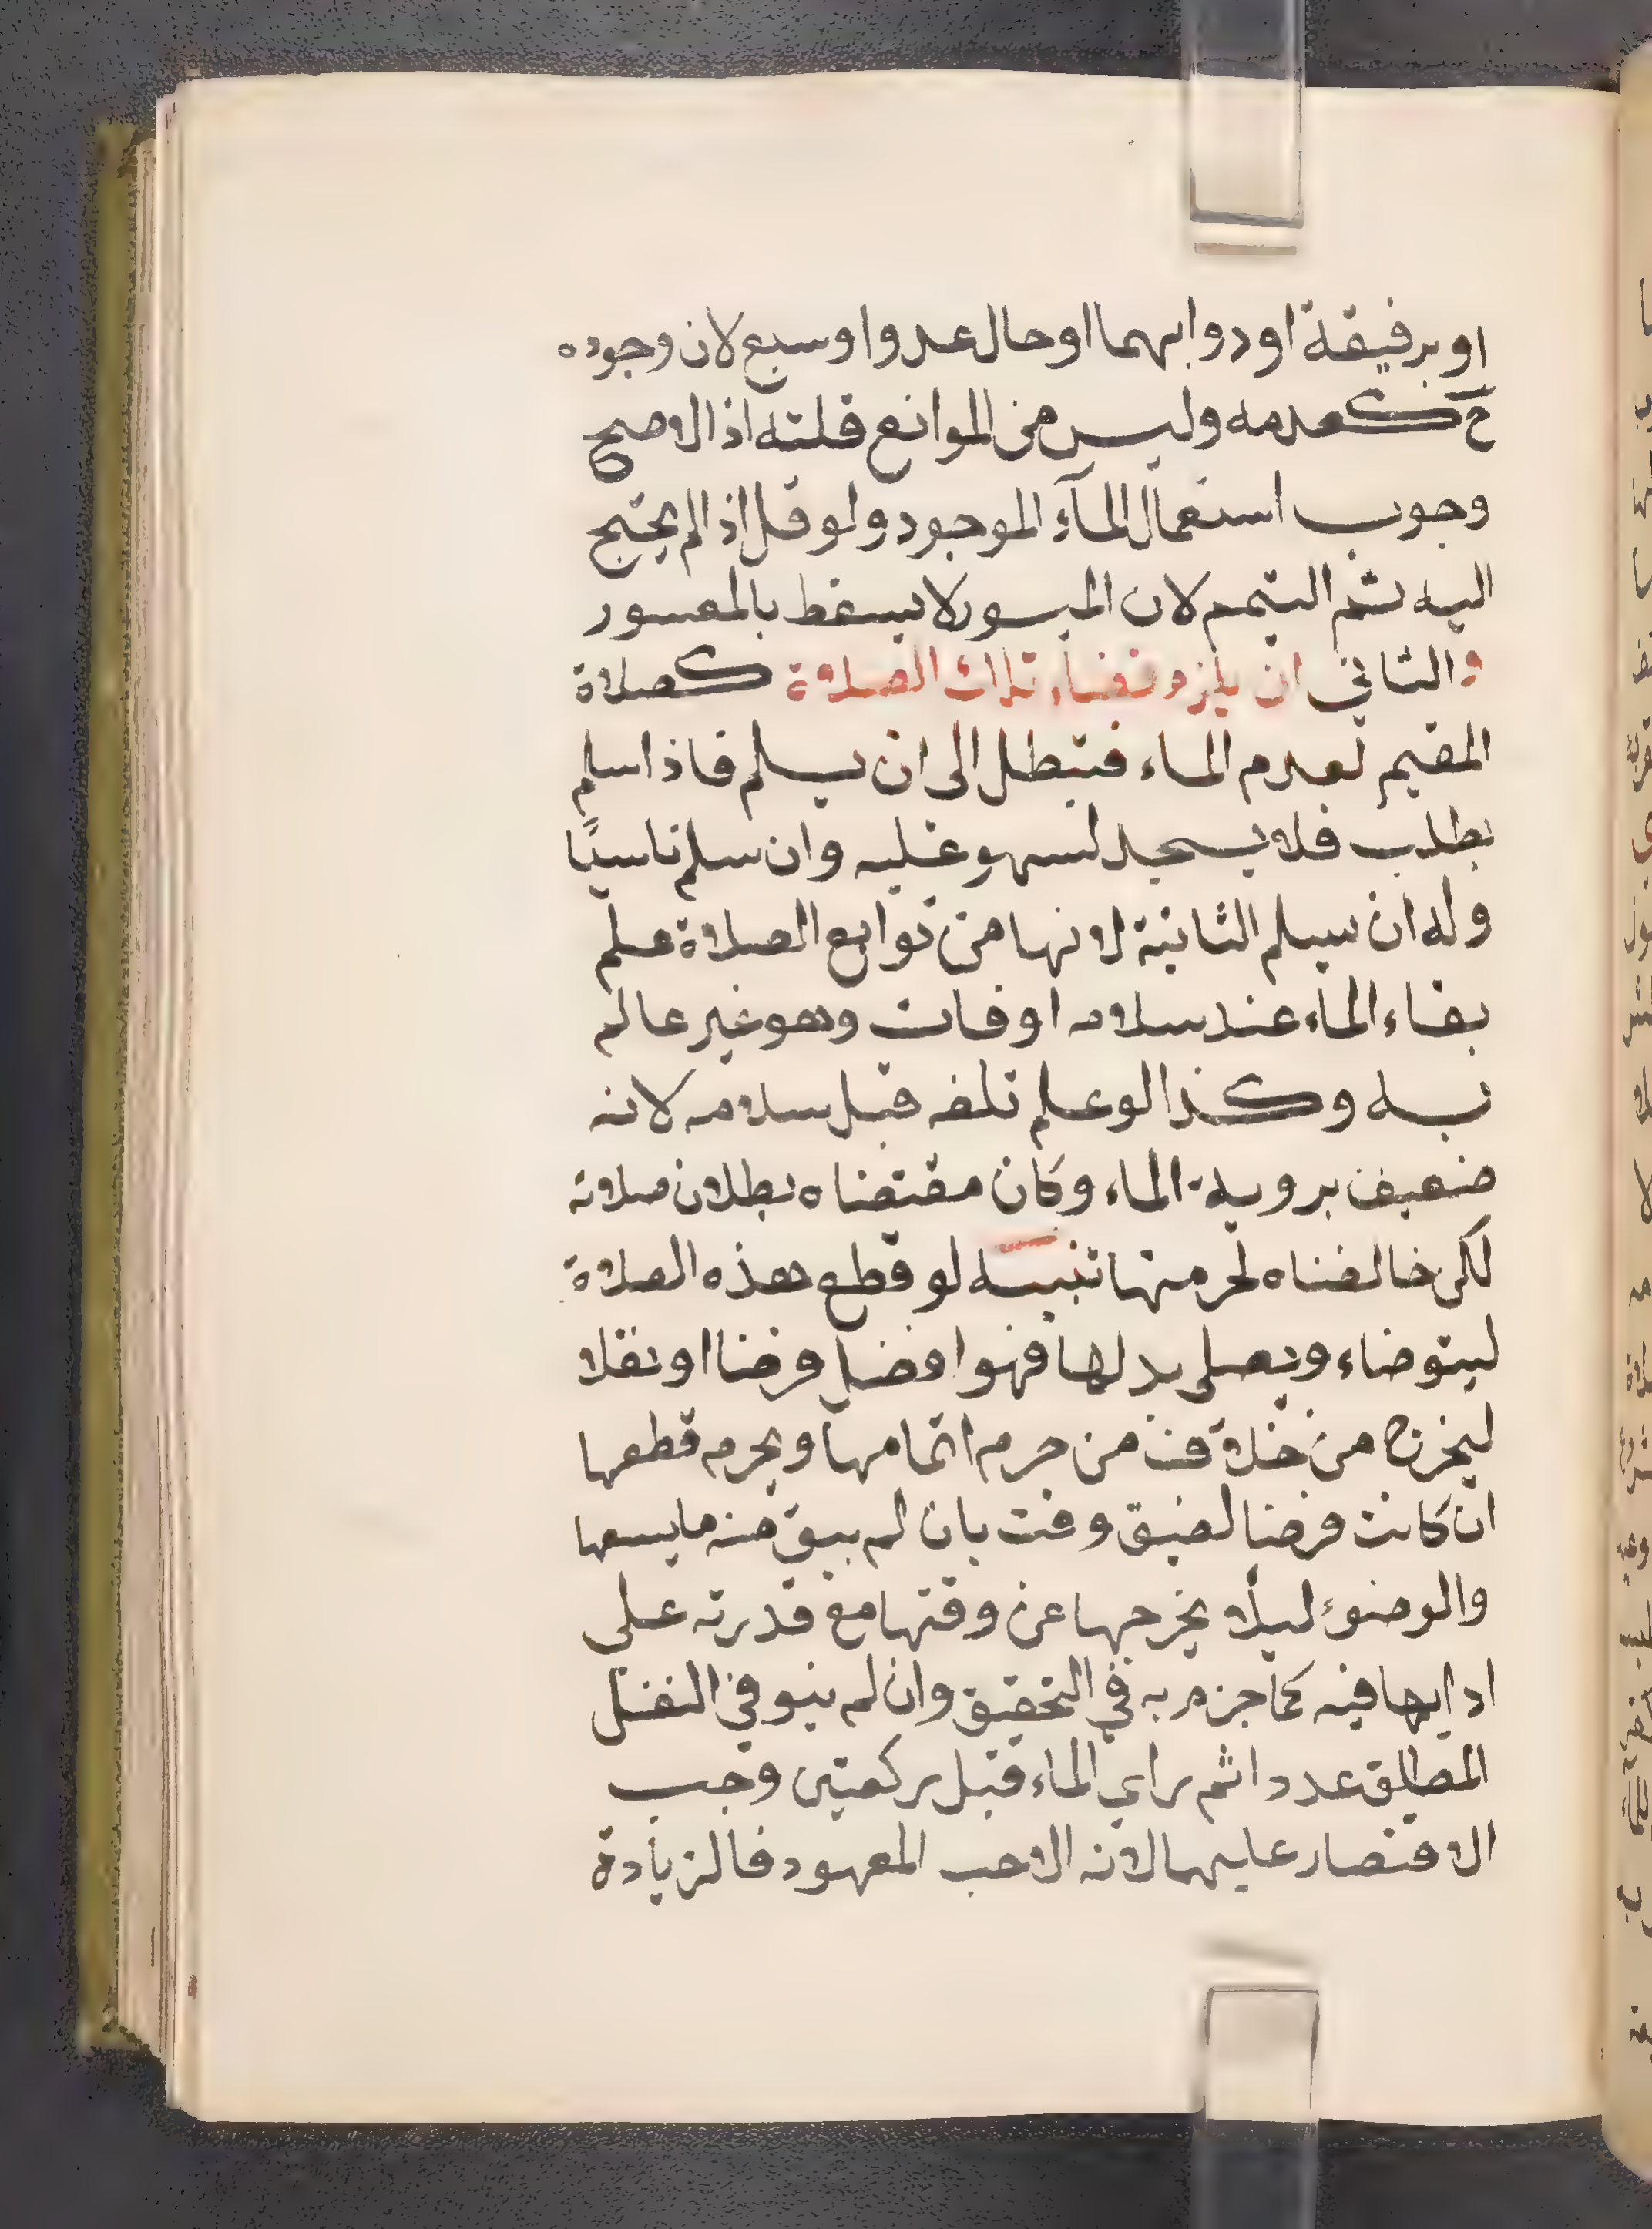 او برفيقة او دوابهما او حال عدوا وسبع لان وجوده
ح كعدمه وليس من الموانع قلته اذ الاصح
وجوب استعمال المآء الموجود ولو قل اذ الم يحتج
اليه ثم التيمم لان الميسور لا يسقط بالمعسور
والثاني ان يلزم قضاء تلك الصلاة كصلاة
المقيم لعدم الماء فتبطل الى ان يسلم فاذا سلم
بطلت فلا يسجد لسهو عليه وان سلم ناسيًا
وله ان يسلم الثانية لانها من توابع الصلاة علم
بقاء الماء عند سلامه او فات وهو غير عالم
به وكذا لو علم تلفه قبل سلامه لانه
ضعيف بروية الماء وكان مقتضاه بطلان صلاته
لكن خالفناه لحرمتها تنبيه لو قطع هذه الصلاة
ليتوضاء ويصلي بدلها فهو افضل فرضا او نفلا
ليخرج من خلاف من حرم اتمامها ويحرم قطعها
ان كانت فرضا لضيق وقت بان لم يبق منه ما يسعها
والوضوء ليلا يخرجها عن وقتها مع قدرته على
ادايها فيه كما جزم به في التحقيق وان لم ينو في النفل
المطلق عددا ثم راي الماء قبل ركعتين وجب
الاقتصار عليهما لانه الاحب المعهود فالزيادة